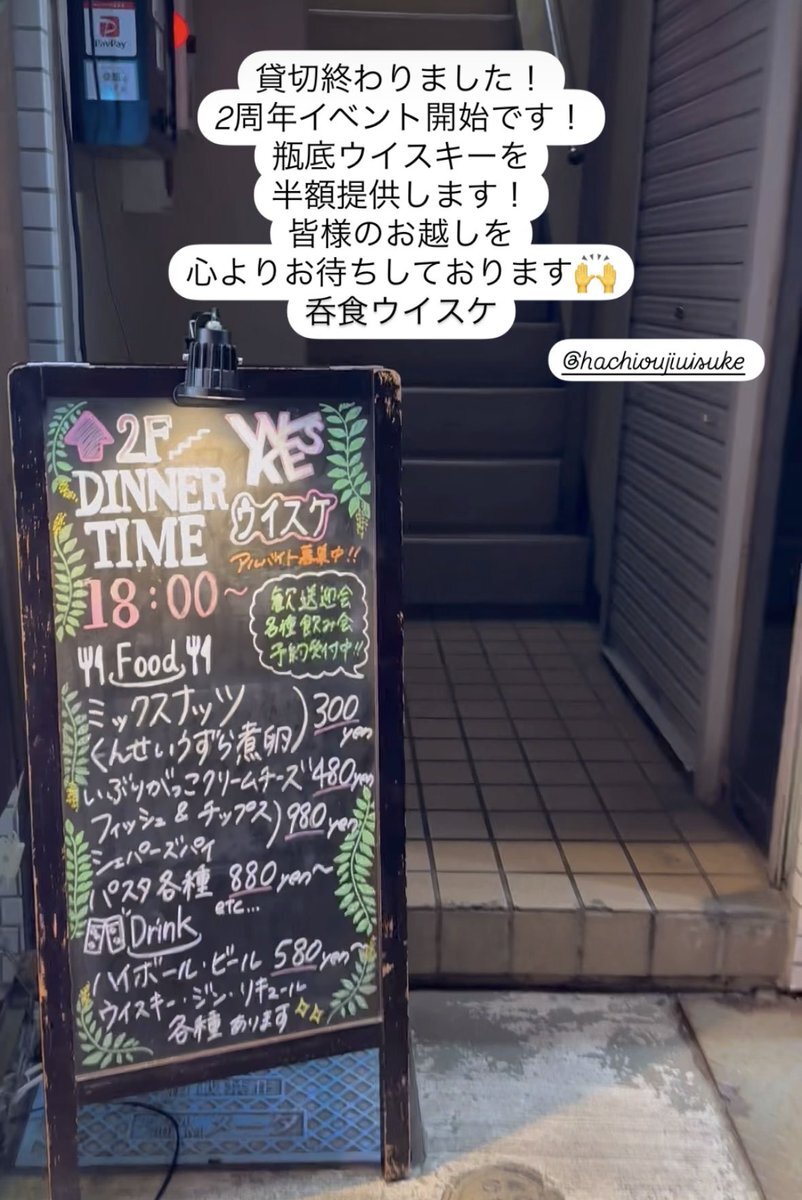 PayPay
貸切終わりました！
2周年イベント開始です！
瓶底ウイスキーを
半額提供します！
皆様のお越しを
心よりお待ちしております🙌
呑食ウイスケ
@hachioujiuisuke
2F
DINNER
TIME
18:00~
WESKE
ウイスケ
アルバイト募集中!!
歓送迎会
各種飲み会
予約受付中!!
Food
ミックスナッツ
くんせいうずら煮卵)300yen
いぶりがっこクリームチーズ 480yen
フィッシュ & チップス
シェパーズパイ)980yen
パスタ各種 880yen~
etc...
Drink
ハイボール・ビール 580yen~
ウイスキー・ジン・リキュール
各種あります